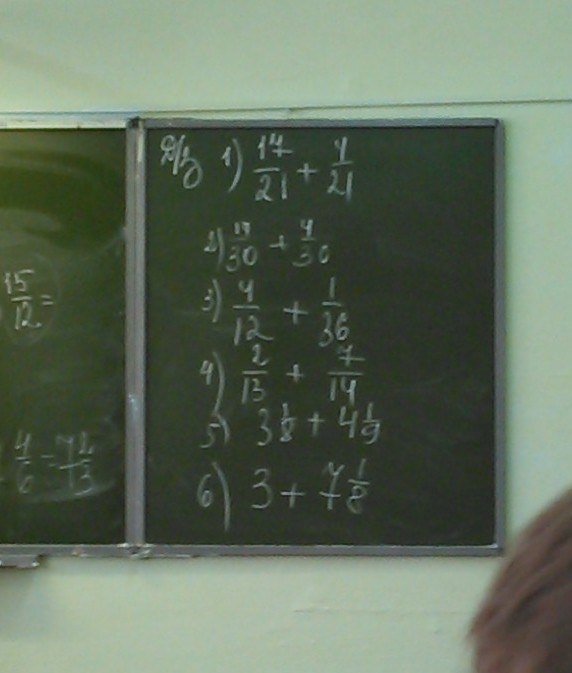 15/12 =
4/6 = 7 2/3
Д/з 1) 17/21 + 4/21
2) /30 + 4/30
3) 4/12 + 1/36
4) 2/13 + 7/14
5) 3 1/8 + 4 1/9
6) 3 + 7 1/8